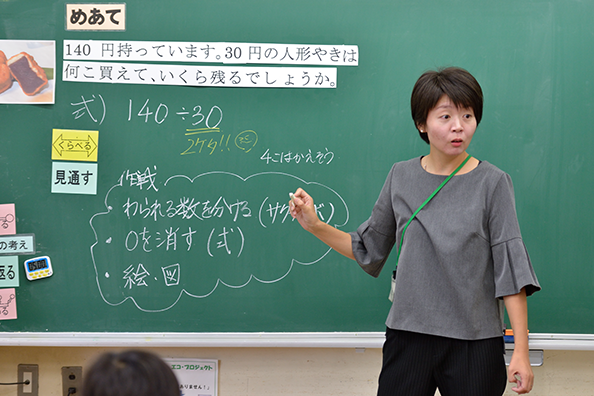 めあて
140 円持っています。30 円の人形やきは
何こ買えて、いくら残るでしょうか。
式) 140÷30
2ケタ!!
くらべる
4こはかえそう
見通す
作戦
・わられる数を分ける(サク
・0を消す(式)
・絵・図
の考え
05:00
エコ・プロジェクト
ありません!